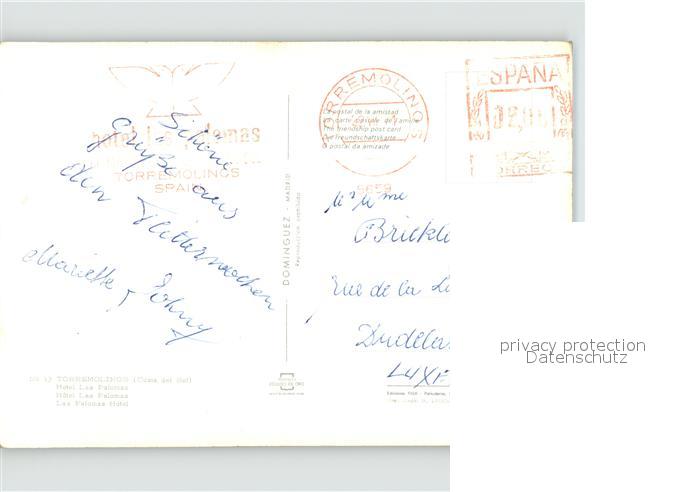 hotel las palomas
TORREMOLINOS
SPAIN
TORREMOLINOS
La postal de la amistad
La carte postale de l'amitié
The friendship post card
Die Freundschaftskarte
O postal da amizade
ESPAÑA
CORREOS
5659
Schöne
Grüße aus
den Flitterwochen
Mariette + Johny
DOMINGUEZ - MADRID
Reproducción prohibida
Mr Mme
Rue de la
LUXE
13 TORREMOLINOS (Costa del Sol)
Hotel Las Palomas
Hôtel Las Palomas
Las Palomas Hôtel
privacy protection
Datenschutz